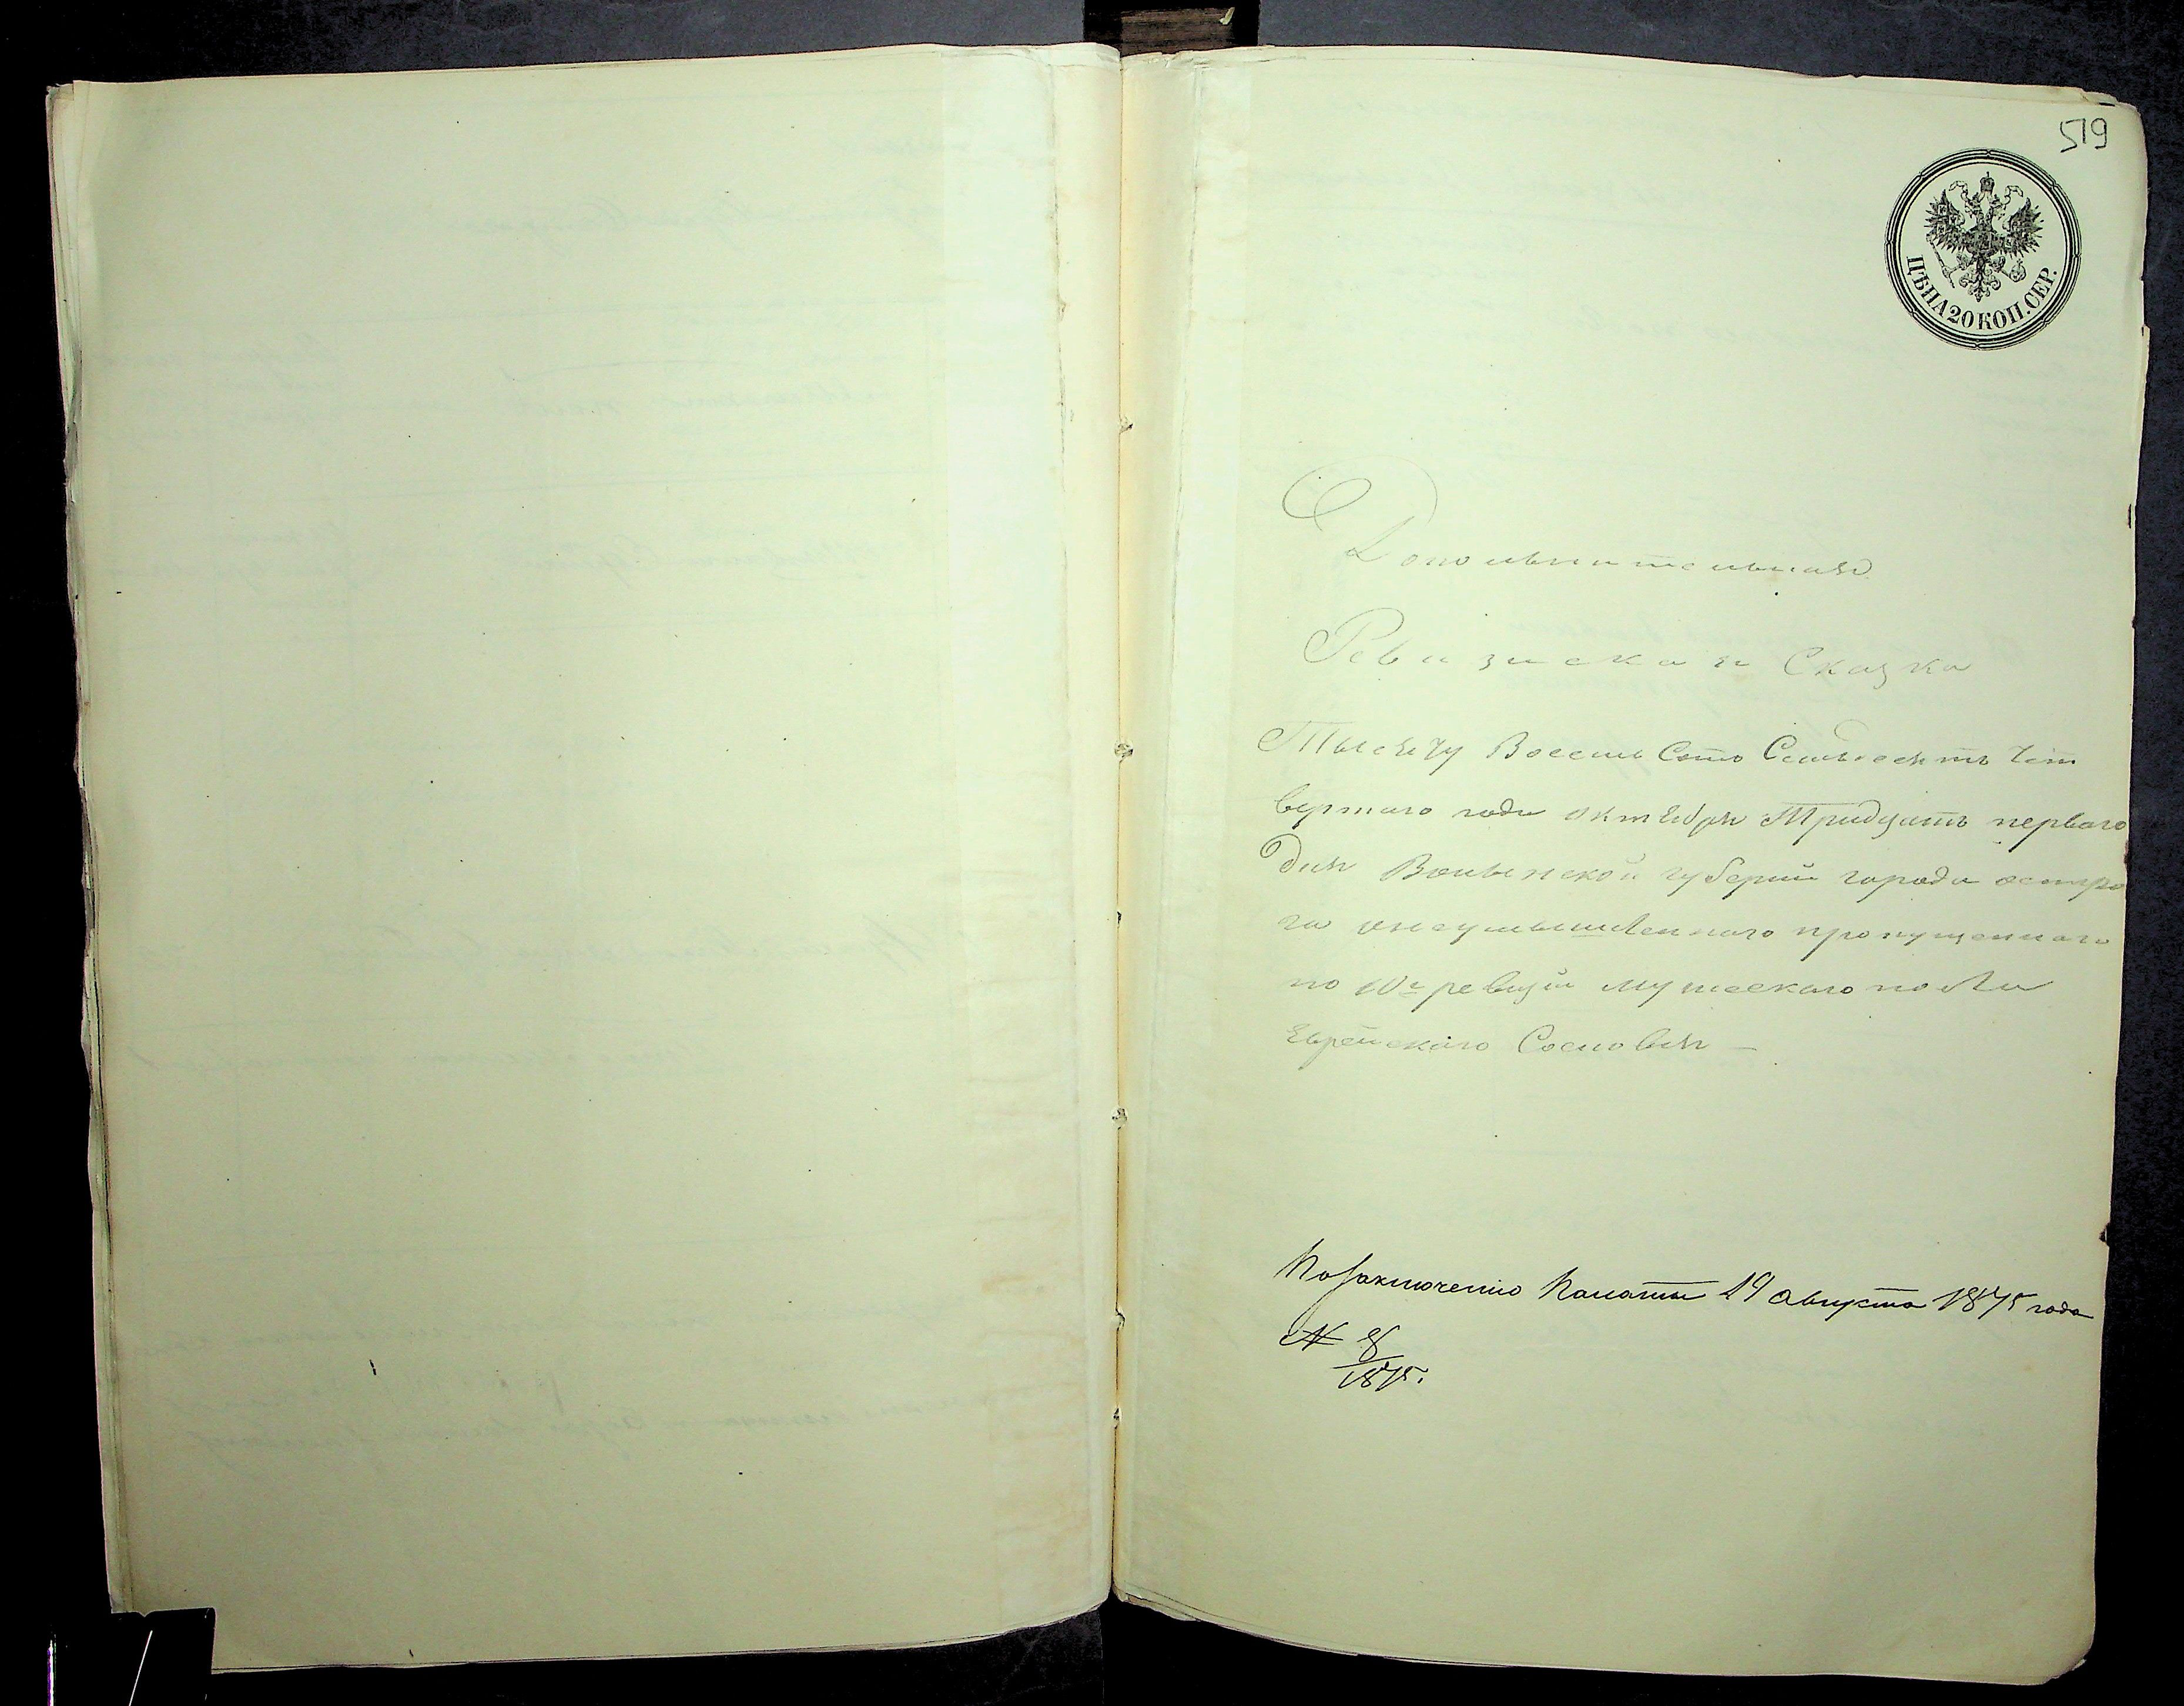 519
ЦѢНА 20 КОП. СЕР.
Дополнительная
Ревизская Сказка
Тысячу Восемь Сотъ Семьдесятъ Чет
вертаго года октября Тридцать перваго
дня Волынской губерніи города остро
га онеумышленнаго пропущеннаго
по 10й ревизіи мужескаго пола
Еврейскаго Сословія —
По заключенію Палаты 29 августа 1875 года
№ 8/1875.